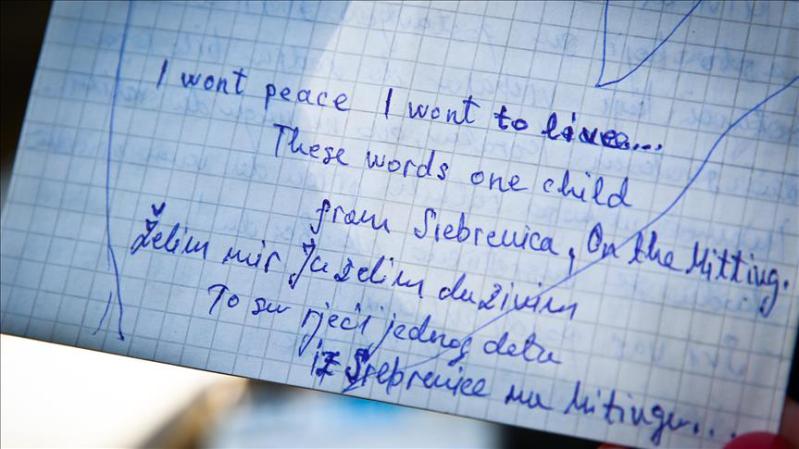 I wont peace I wont to livea...
These words one child
from Srebrenica, On the Mitting.
Želim mir Ja želim da živim
To su riječi jednog deta
iz Srebrenice na Mitingu...